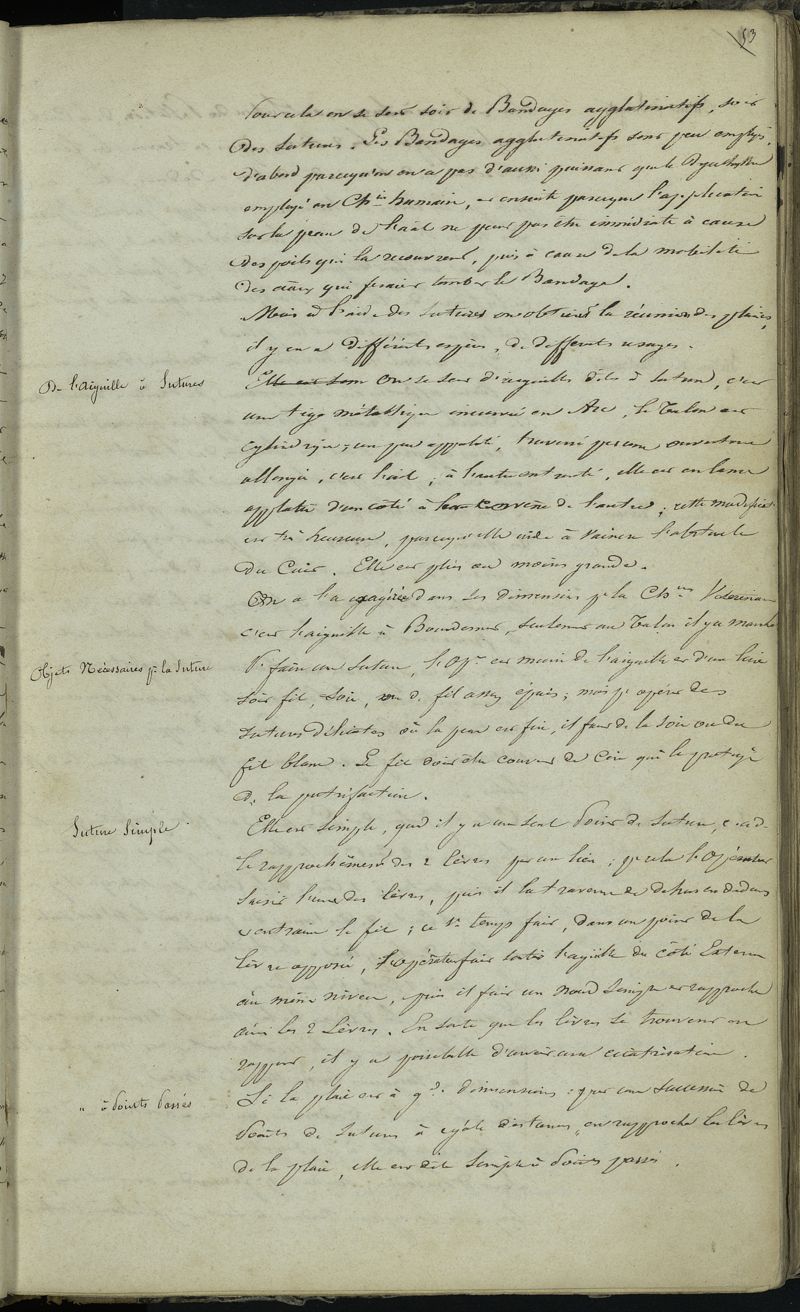 53
Pour cela on se sert soit de Bandages agglutinatifs, soit
des sutures. Les Bandages agglutinatifs sont peu employés,
d'abord parcequ'on en a pas d'aussi puissant que le Dyachylum
employé en Ch.ie humaine, et ensuite parceque l'application
sur la peau de l'a͞al ne peut pas être immédiate à cause
des poils qui la recouvrent, puis à cause de la mobilité
des a͞aux qui ferait tomber le Bandage.
Mais à l'aide des sutures on obtient la réunion des plaies,
il y en a différentes espèces, de différents usages.
De l'aiguille à Sutures
Elle est On se sert d'aiguilles dites à suture, c'est
une tige métallique incurvée en Arc, le Talon est
cylindrique, un peu applati, traversé par une ouverture
allongée, c'est l'œil; à l'autre extrémité, elle est en lance
applatie d'un côté à convexe de l'autre; cette modification
est très heureuse, parcequ'elle aide à vaincre l'obstacle
du Cuir. Elle est plus ou moins grande.
On a l'a exagérée dans ses dimensions pr la Ch.ie Vétérinaire
c'est l'aiguille à Bourdonnet, seulement au Talon il y a manche
Objets Nécessaires pr la Suture
Pr faire une suture, l'Opr est muni de l'aiguille et d'un lien
soit fil, soie, ou de fil assez épais; mais pr opérer des
sutures délicates où la peau est fine, il faut de la soie ou du
fil blanc. Le fil doit être couvert de Cire qui le protège
de la putréfaction.
Suture Simple
Elle est simple, quand il y a un seul Point de suture, c.-à-d.
le rapprochement des 2 lèvres par un lien; pr cela l'Opérateur
saisit l'une des lèvres, puis il la traverse de dehors en dedans
et entraine le fil; ce 1er temps fait, dans un point de la
lèvre opposée, l'opérateur fait sortir l'aiguille du côté Externe
au même niveau, puis il fait un nœud simple et rapproche
ainsi les 2 Lèvres. En sorte que les lèvres se trouvent en
rapport, il y a possibilité d'avoir une cicatrisation.
" à Points Passés
Si la plaie est à gdes dimensions; par une succession de
Points de suture à égale distance, on rapproche les lèvres
de la plaie, elle est dite simple à Points passés.